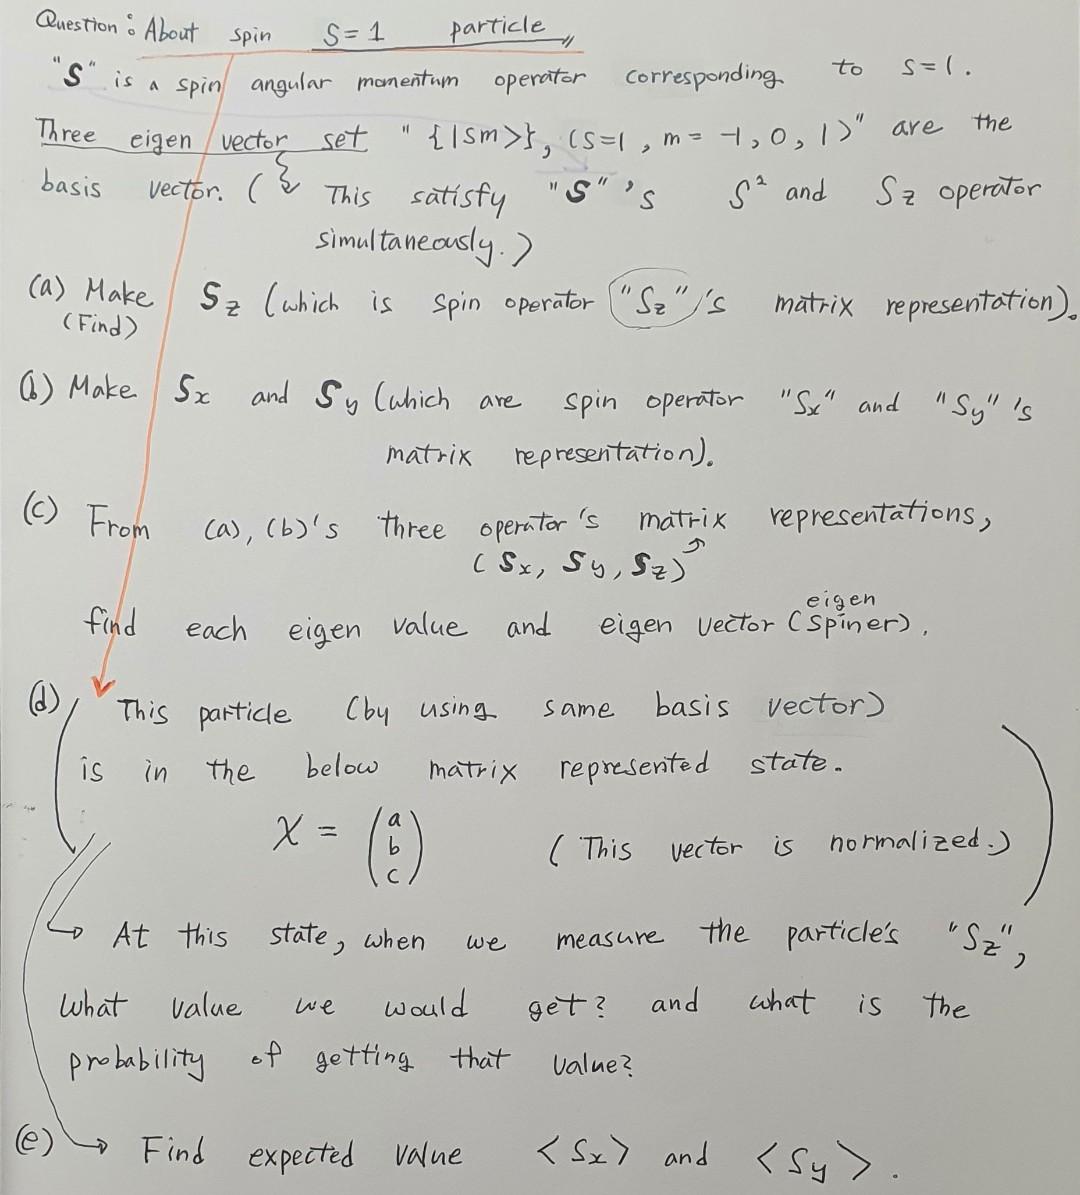 Question : About spin S = 1 particle
"S" is a spin angular momentum operator corresponding to s=1.
Three eigen vector set "{|sm>}, (s=1, m = -1, 0, 1)" are the
basis vector. ( This satisfy "S"'s S² and Sz operator
simultaneously.)
(a) Make Sz (which is spin operator "Sz"'s matrix representation).
(Find)
(b) Make Sx and Sy (which are spin operator "Sx" and "Sy"'s
matrix representation).
(c) From (a), (b)'s three operator's matrix representations,
(Sx, Sy, Sz)
find each eigen value and eigen vector (eigen spiner).
(d) This particle (by using same basis vector)
is in the below matrix represented state.
χ = (a b c) (This vector is normalized.)
→ At this state, when we measure the particle's "Sz",
what value we would get? and what is the
probability of getting that value?
(e) → Find expected value <Sx> and <Sy>.